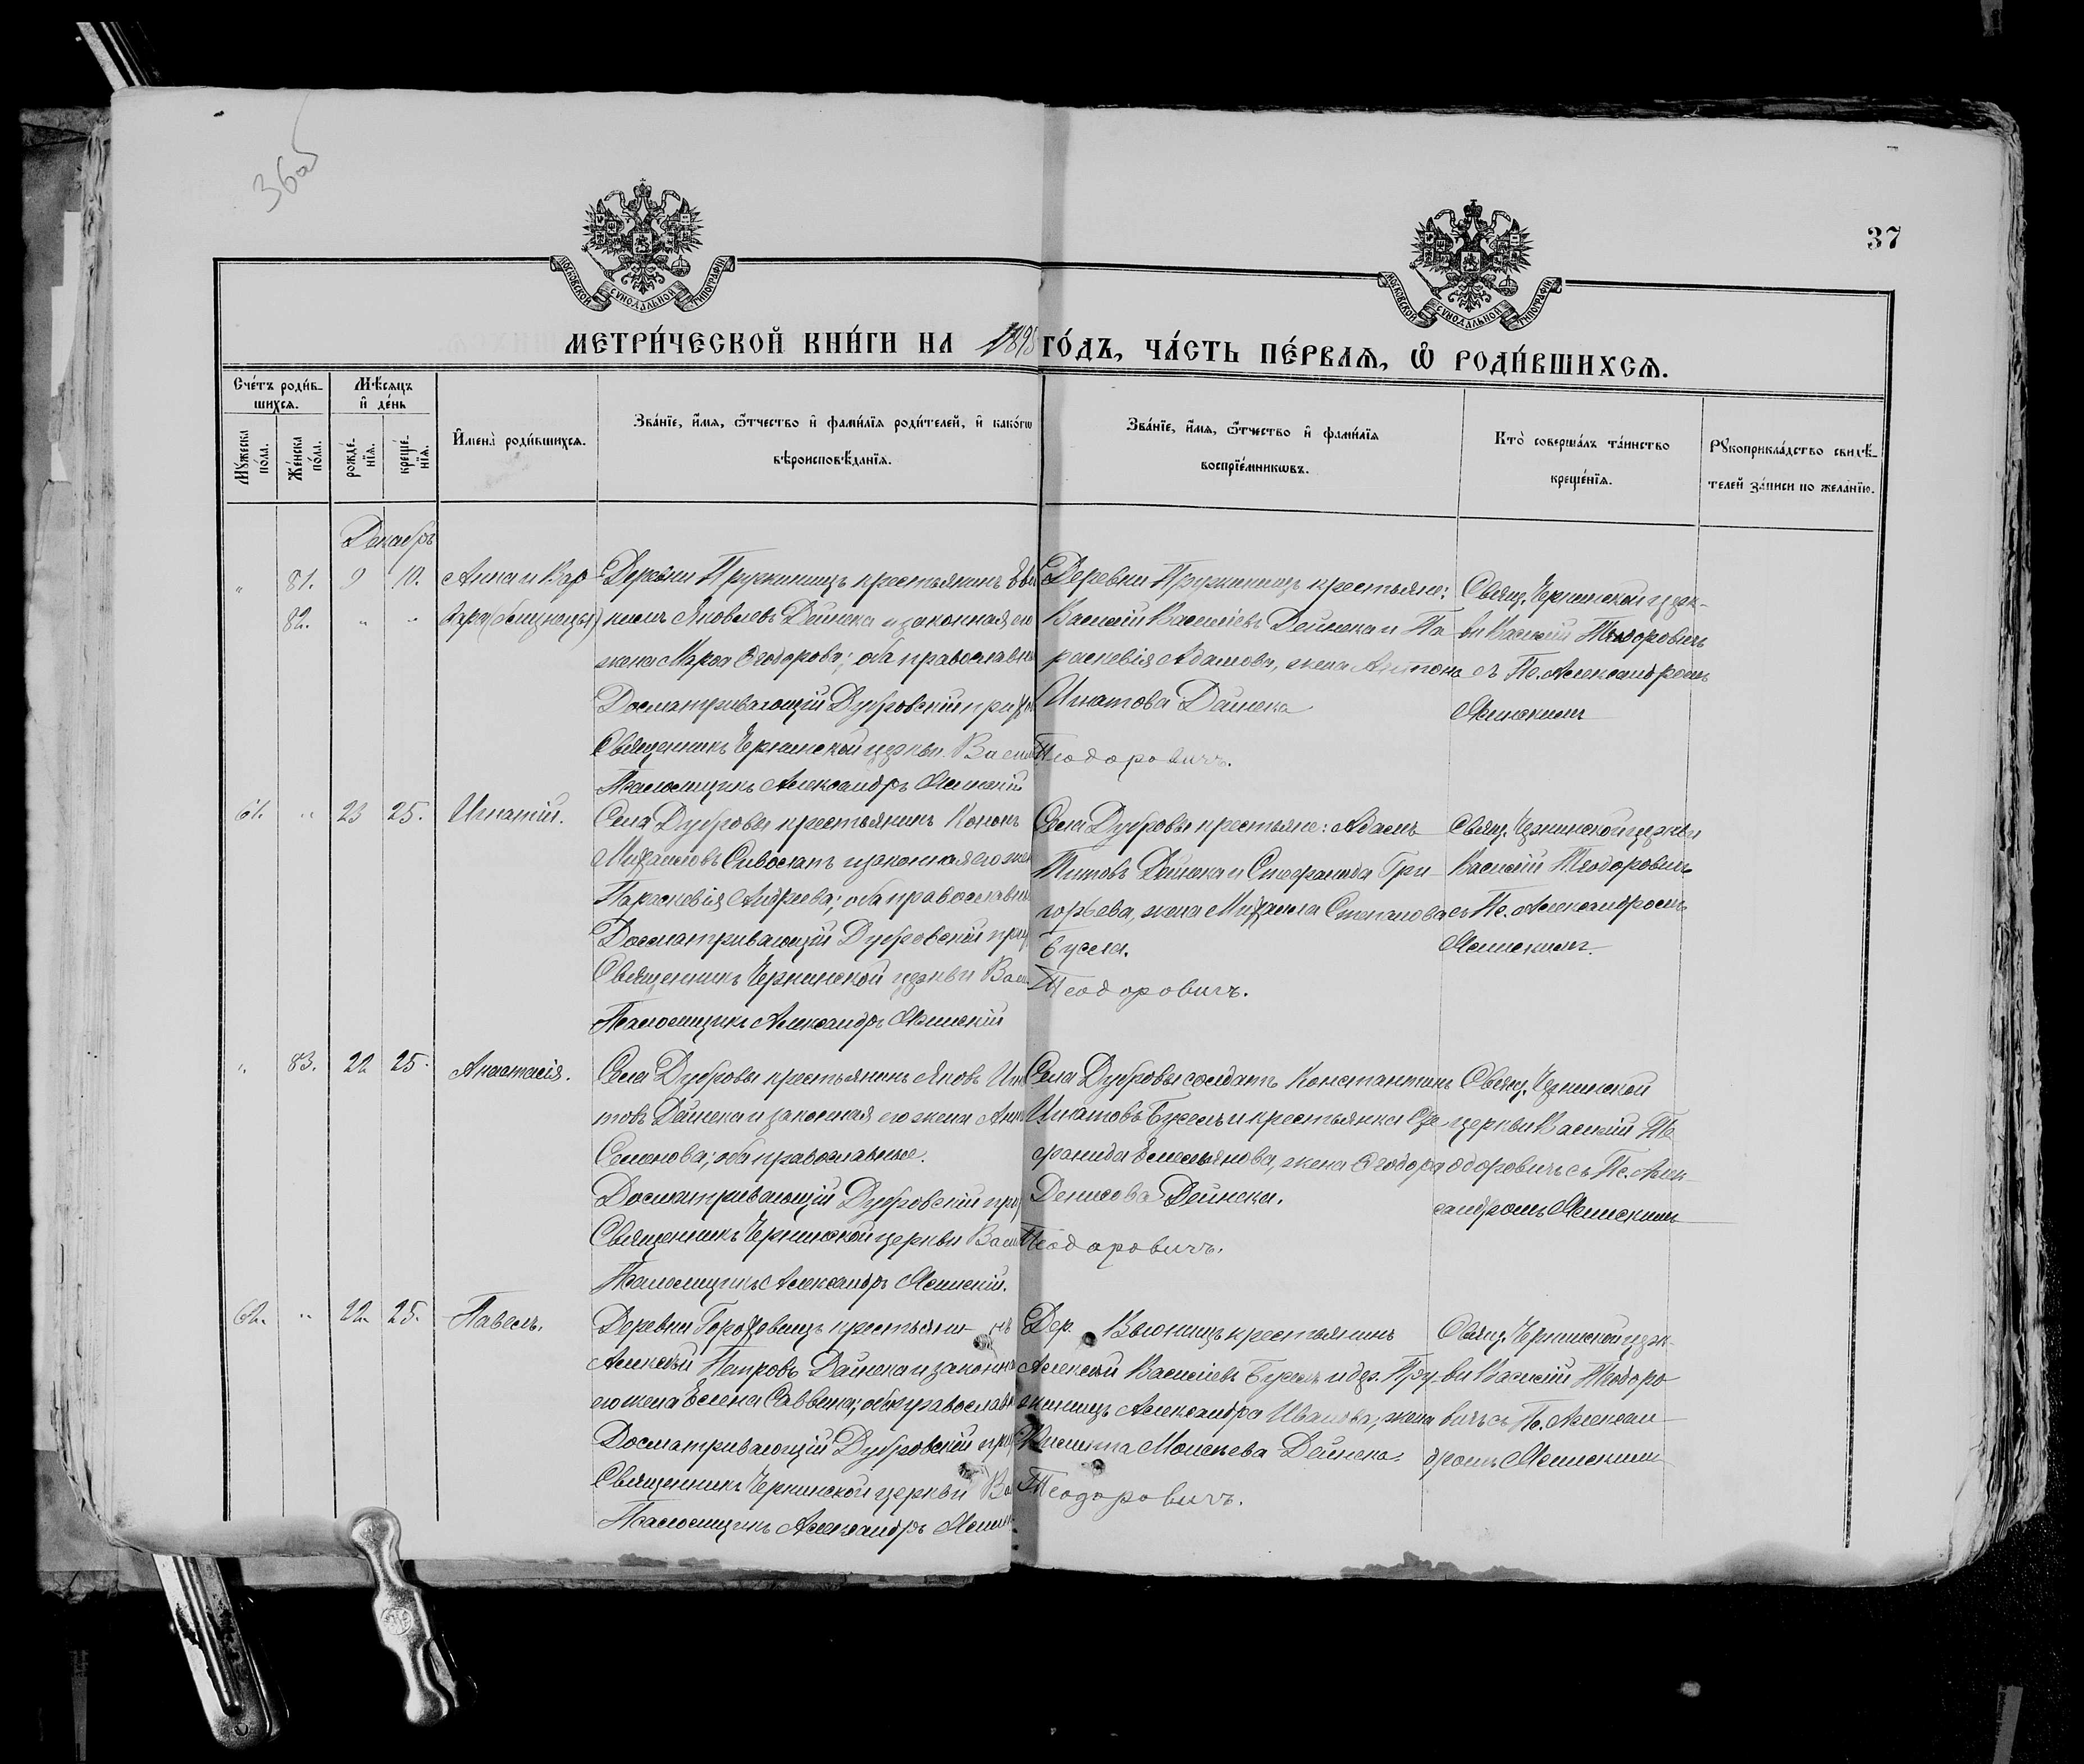 36об
37
МОСКОВСКОЙ СѴНОДАЛЬНОЙ ТИПОГРАФІИ
МОСКОВСКОЙ СѴНОДАЛЬНОЙ ТИПОГРАФІИ
МЕТРИ́ЧЕСКОЙ КНИ́ГИ НА 1898 ГО́ДЪ, ЧА́СТЬ ПЕ́РВАѦ, Ѡ҆ РОДИ́ВШИХСѦ.
Сче́тъ роди́вшихсѧ.
Мꙋжеска по́ла.
Же́нска по́ла.
Мѣ́сѧцъ и҆ де́нь
рожде́нїѧ.
креще́нїѧ.
И҆мена̀ роди́вшихсѧ.
Зва́нїе, и҆́мѧ, ѻ҆́тчество и҆ фами́лїѧ роди́телей, и҆ како́гѡ
вѣроисповѣ́данїѧ.
Зва́нїе, и҆́мѧ, ѻ҆́тчество и҆ фами́лїѧ
воспрїе́мникѡвъ.
Кто̀ соверша́лъ та́инство
креще́нїѧ.
Рꙋкоприкла́дство свидѣ́
телей за́писи по жела́нїю.
Декабрь
" 81. 9 10. Анна и Вар
82. " " вара (близнецы)
Деревни Пружинищъ крестьянинъ Еви
кимъ Яковлевъ Дейнека и законная его
жена Марѳа Ѳеодорова; оба православн
Досматривающій Дубровскій прих
Священникъ Чернинской церкви Васил
Псаломщикъ Александръ Ясинскій
Деревни Пружинищъ крестьяне:
Василій Василіевъ Дейнека и Па
раскевія Адамова, жена Антона
Игнатова Дейнека
Теодоровичъ.
Свящ. Чернинской церк-
ви Василій Теодоровичъ
съ Пс. Александромъ
Ясинскимъ
61. " 23 25. Игнатій.
Села Дубровы крестьянинъ Кононъ
Михаиловъ Сивоглазъ и законная его жен
Параскевія Андреева; оба православн
Досматривающій Дубровскій прих
Священникъ Чернинской церкви Васи
Псаломщикъ Александръ Ясинскій
Села Дубровы крестьяне: Адамъ
Титовъ Дейнека и Стефанида Гри
горьева, жена Михаила Степанова
Бусела.
Теодоровичъ.
Свящ. Чернинской церкви
Василій Теодоровичъ
съ Пс. Александромъ
Ясинскимъ.
" 83. 22 25. Анастасія.
Села Дубровы крестьянинъ Яковъ Игна
товъ Дейнека и законная его жена Анна
Семенова; оба православные.
Досматривающій Дубровскій прих
Священникъ Чернинской церкви Васил
Псаломщикъ Александръ Ясинскій.
Села Дубровы солдатъ Константинъ
Игнатовъ Буселъ и крестьянка Сте
фанида Емельянова, жена Ѳеодора
Денисова Дейнека.
Теодоровичъ.
Свящ. Чернинской
церкви Василій Те
одоровичъ съ Пс. Алек-
сандромъ Ясинскимъ
62. " 22. 25. Павелъ.
Деревни Гороховищъ крестьянинъ
Алексѣй Петровъ Дейнека и законная
его жена Елена Саввина; оба православн
Досматривающій Дубровскій прих
Священникъ Чернинской церкви Ва
Псаломщикъ Александръ Ясинск
Дер. Вьюнищъ крестьянинъ
Алексѣй Василіевъ Буселъ и дер. Пру
жинищъ Александра Иванова, жена
Никиты Моисеева Дейнека.
Теодоровичъ.
Свящ. Чернинской церк-
ви Василій Теодоро
вичъ съ Пс. Алексан
дромъ Ясинскимъ